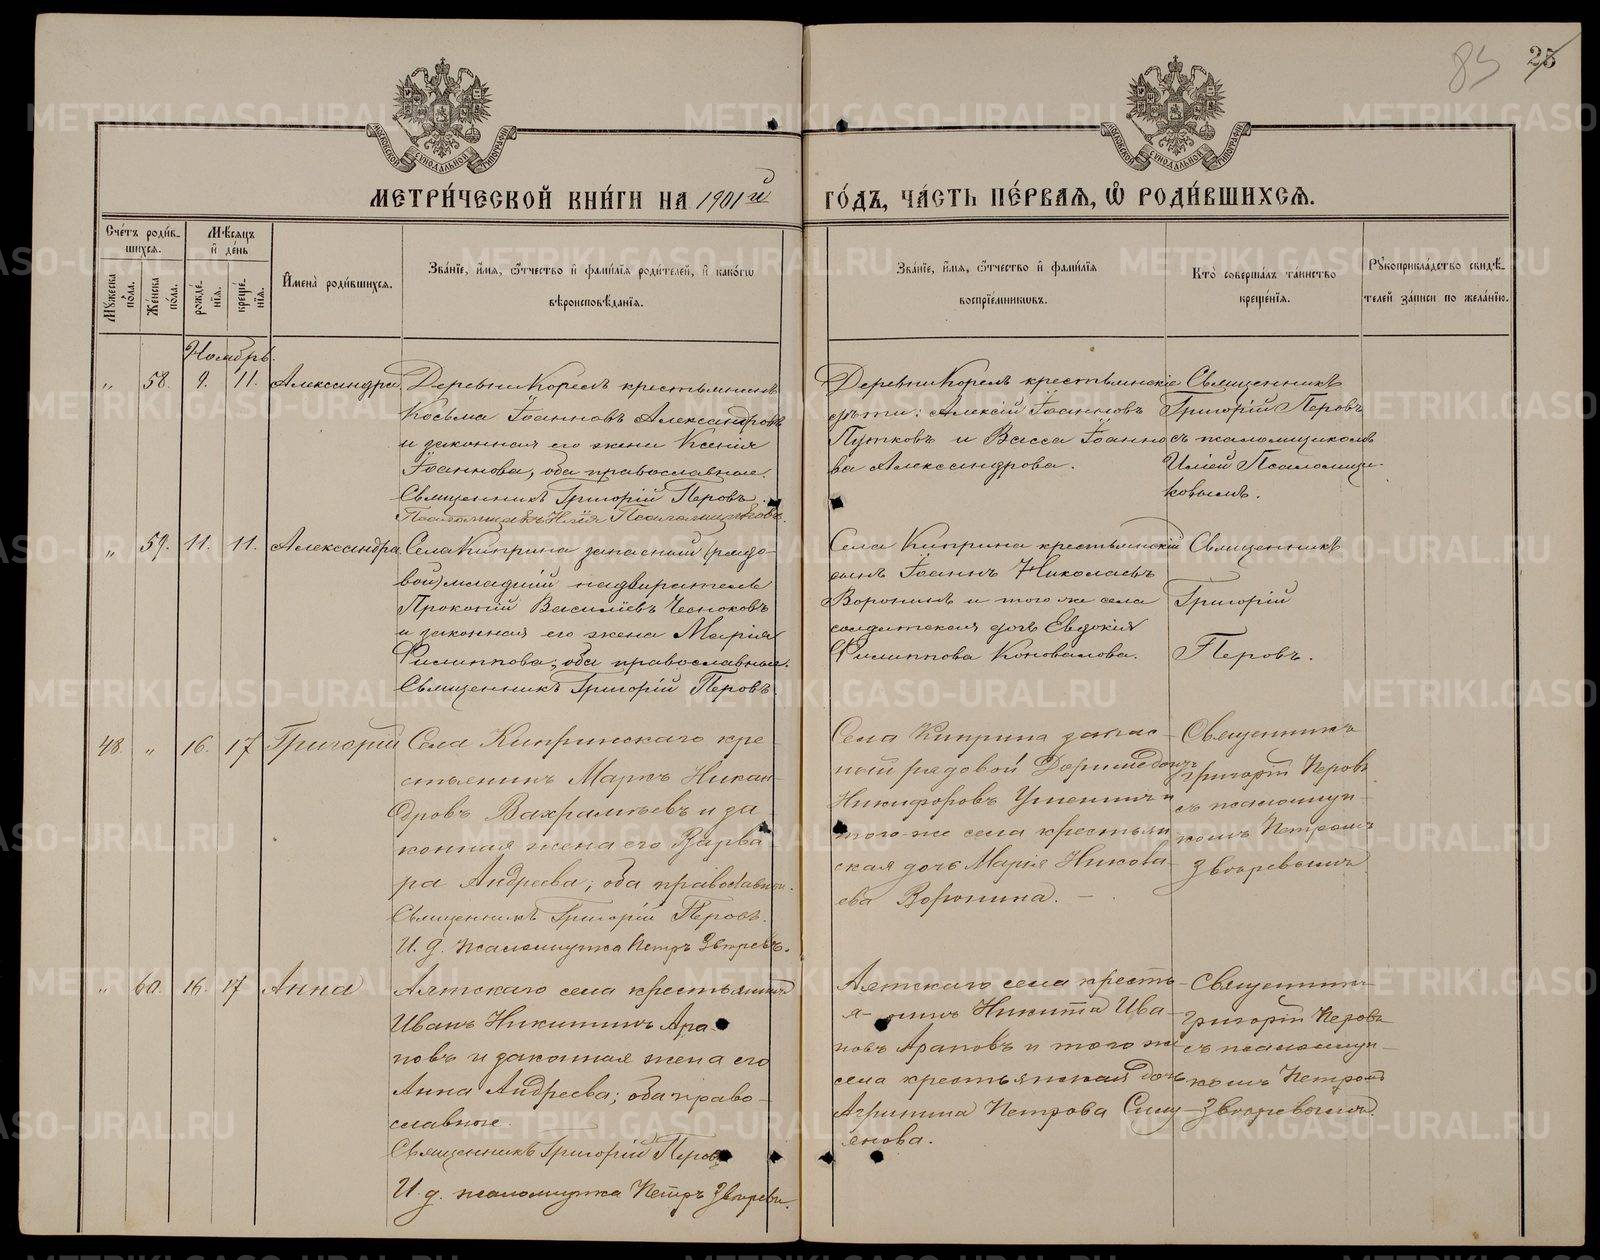 85
25
МЕТРИ́ЧЕСКОЙ КНИ́ГИ НА 1901й ГО́ДЪ, ЧА́СТЬ ПЕ́РВАѦ, Ѡ РОДИ́ВШИХСѦ.
МОСКОВСКОЙ СѴНОДАЛЬНОЙ ТИПОГРАФІИ
МОСКОВСКОЙ СѴНОДАЛЬНОЙ ТИПОГРАФІИ
Сче́тъ роди́в-
шихсѧ.
Мꙋ́жеска по́ла.
Же́нска по́ла.
Мѣ́сѧцъ
и҆ де́нь
рожде́-
нїѧ.
креще́-
нїѧ.
И҆мена̀ роди́вшихсѧ.
Зва́нїе, и҆́мѧ, ѻ҆́тчество и҆ фами́лїѧ роди́телей, и҆ како́гѡ
вѣроисповѣ́данїѧ.
Зва́нїе, и҆́мѧ, ѻ҆́тчество и҆ фами́лїѧ
воспрїе́мникѡвъ.
Кто̀ соверша́лъ таинство
креще́нїѧ.
Рꙋкоприкла́дство свидѣ́-
телей за́писи по жела́нїю.
Ноябрь.
„ 58. 9. 11. Александра
Деревни Корелъ крестьянинъ
Косьма Іоанновъ Александровъ
и законная его жена Ксенія
Іоаннова, оба православные.
Священникъ Григорій Перовъ.
Псаломщикъ Илія Псаломщиковъ.
Деревни Корелъ крестьянскіе
дѣти: Алексій Іоанновъ
Путковъ и Васса Іоанно-
ва Александрова.
Священникъ
Григорій Перовъ
съ псаломщикомъ
Иліей Псаломщи-
ковымъ.
„ 59. 11. 11. Александра
Села Киприна запасный (рядо-
вой) младшій надзиратель
Прокопій Василіевъ Чесноковъ
и законная его жена Марія
Филиппова, оба православные.
Священникъ Григорій Перовъ.
Села Киприна крестьянскій
сынъ Іоаннъ Николаевъ
Воронинъ и того же села
солдатская дочь Евдокія
Филиппова Коновалова.
Священникъ
Григорій
Перовъ.
48 „ 16. 17 Григорій
Села Кипринскаго кре-
стьянинъ Маркъ Никан-
дровъ Вахрамѣевъ и за-
конная жена его Варва-
ра Андреева; оба православные.
Священникъ Григорій Перовъ.
И. д. псаломщика Петръ Звѣревъ.
Села Киприна запас-
ный рядовой Доримедонтъ
Никифоровъ и
того-же села крестьян-
ская дочь Марія Никола-
ева Воронина. –
Священникъ
Григорій Перовъ
съ псаломщи-
комъ Петромъ
Звѣревымъ
„ 60. 16. 17 Анна
Аятскаго села крестьянинъ
Иванъ Никитинъ Ара-
повъ и законная жена его
Анна Андреева; оба право-
славные.
Священникъ Григорій Перовъ
И. д. псаломщика Петръ Звѣревъ.
Аятскаго села кресть-
янинъ Никита Ива-
новъ Араповъ и того же
села крестьянская дочь
Агрипина Петрова Силу-
янова.
Священникъ
Григорій Перовъ
съ псаломщи-
комъ Петромъ
Звѣревымъ.
METRIKI.GASO-URAL.RU